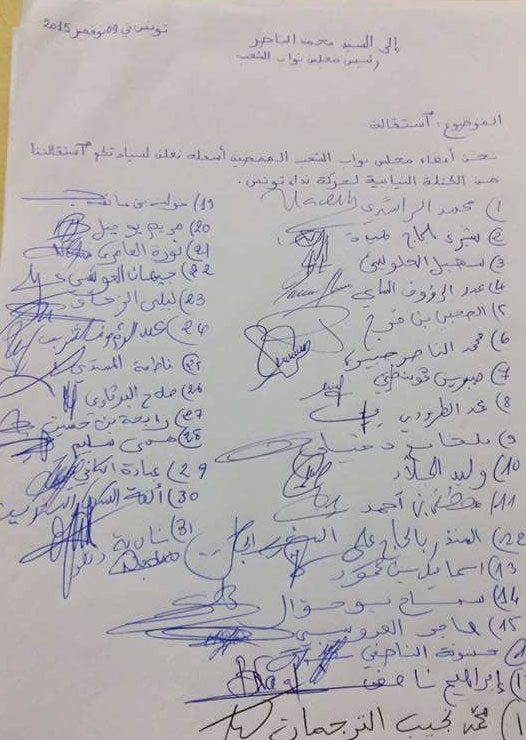 تونس في 09 نوفمبر 2015
إلى السيد محمد الناصر
رئيس مجلس نواب الشعب
الموضوع: استقالة
نحن أعضاء مجلس نواب الشعب الممضين أسفله نعلن لسيادتكم استقالتنا
من الكتلة النيابية لحركة نداء تونس.
1) محمد الراشدي
2) بشرى بلحاج حميدة
3) سهيل العلويني
4) عبد الرؤوف الماي
الصحبي بن فرج
6) محمد الناصر جبيرة
7) صبرين
8) محمد الطرودي
9) بلحاج دقيلي
10) وليد الجلاد
11) مصطفى بن أحمد
12) المنذر بالحاج علي
13) اسماعيل بن محمود
14) سماح بوحوال
15) هاجر العروسي
حسونة الناصفي
إبراهيم ناصف
محمد نجيب الترجمان
19) دولت بن
20) مريم بو جبل
21) نورة العامري
22) جيهان العويشي
23) ليلى الزحاف
24) عبد الرؤوف الشريف
25) فاطمة المسدي
26) صلاح البرقاوي
27) رابحة بن حسين
28) هدى سليم
29) عبادة الكافي
30) ألفة السكري
31) نادية